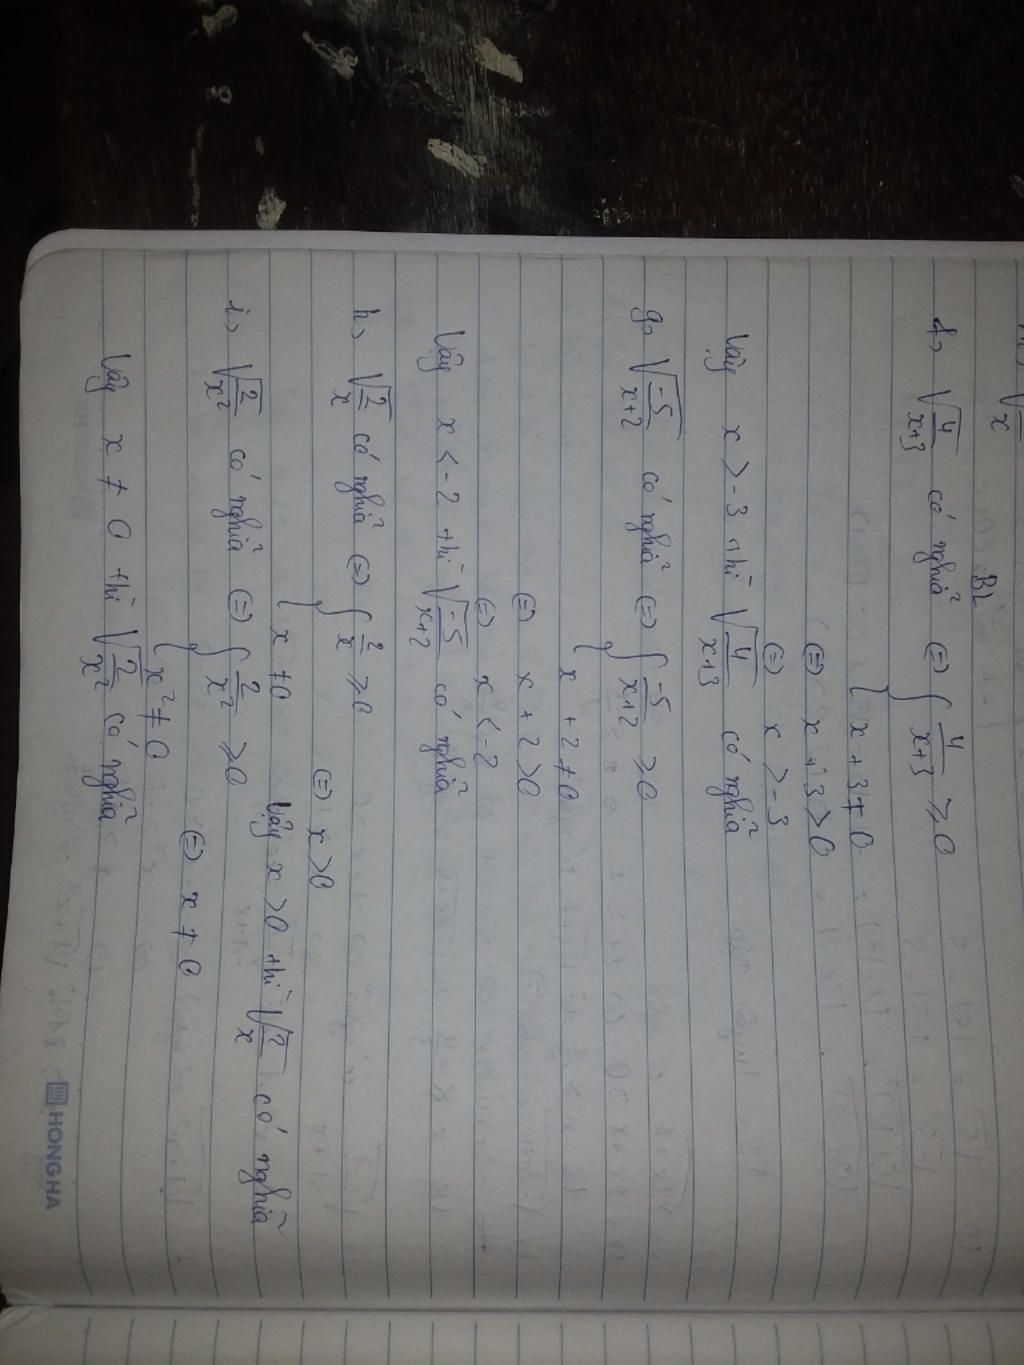 BL
f, √4/x+3 có nghĩa ⇔ { 4/x+3 ⩾ 0
x + 3 ≠ 0
⇔ x + 3 > 0
⇔ x > -3
Vậy x > -3 thì √4/x+3 có nghĩa
g, √-5/x+2 có nghĩa ⇔ { -5/x+2 ⩾ 0
x + 2 ≠ 0
⇔ x + 2 > 0
⇔ x < -2
Vậy x < -2 thì √-5/x+2 có nghĩa
h, √2/x có nghĩa ⇔ { 2/x ⩾ 0
x ≠ 0
⇔ x > 0
Vậy x > 0 thì √2/x có nghĩa
i, √2/x² có nghĩa ⇔ { 2/x² ⩾ 0
x² ≠ 0
⇔ x ≠ 0
Vậy x ≠ 0 thì √2/x² có nghĩa
HONG HA